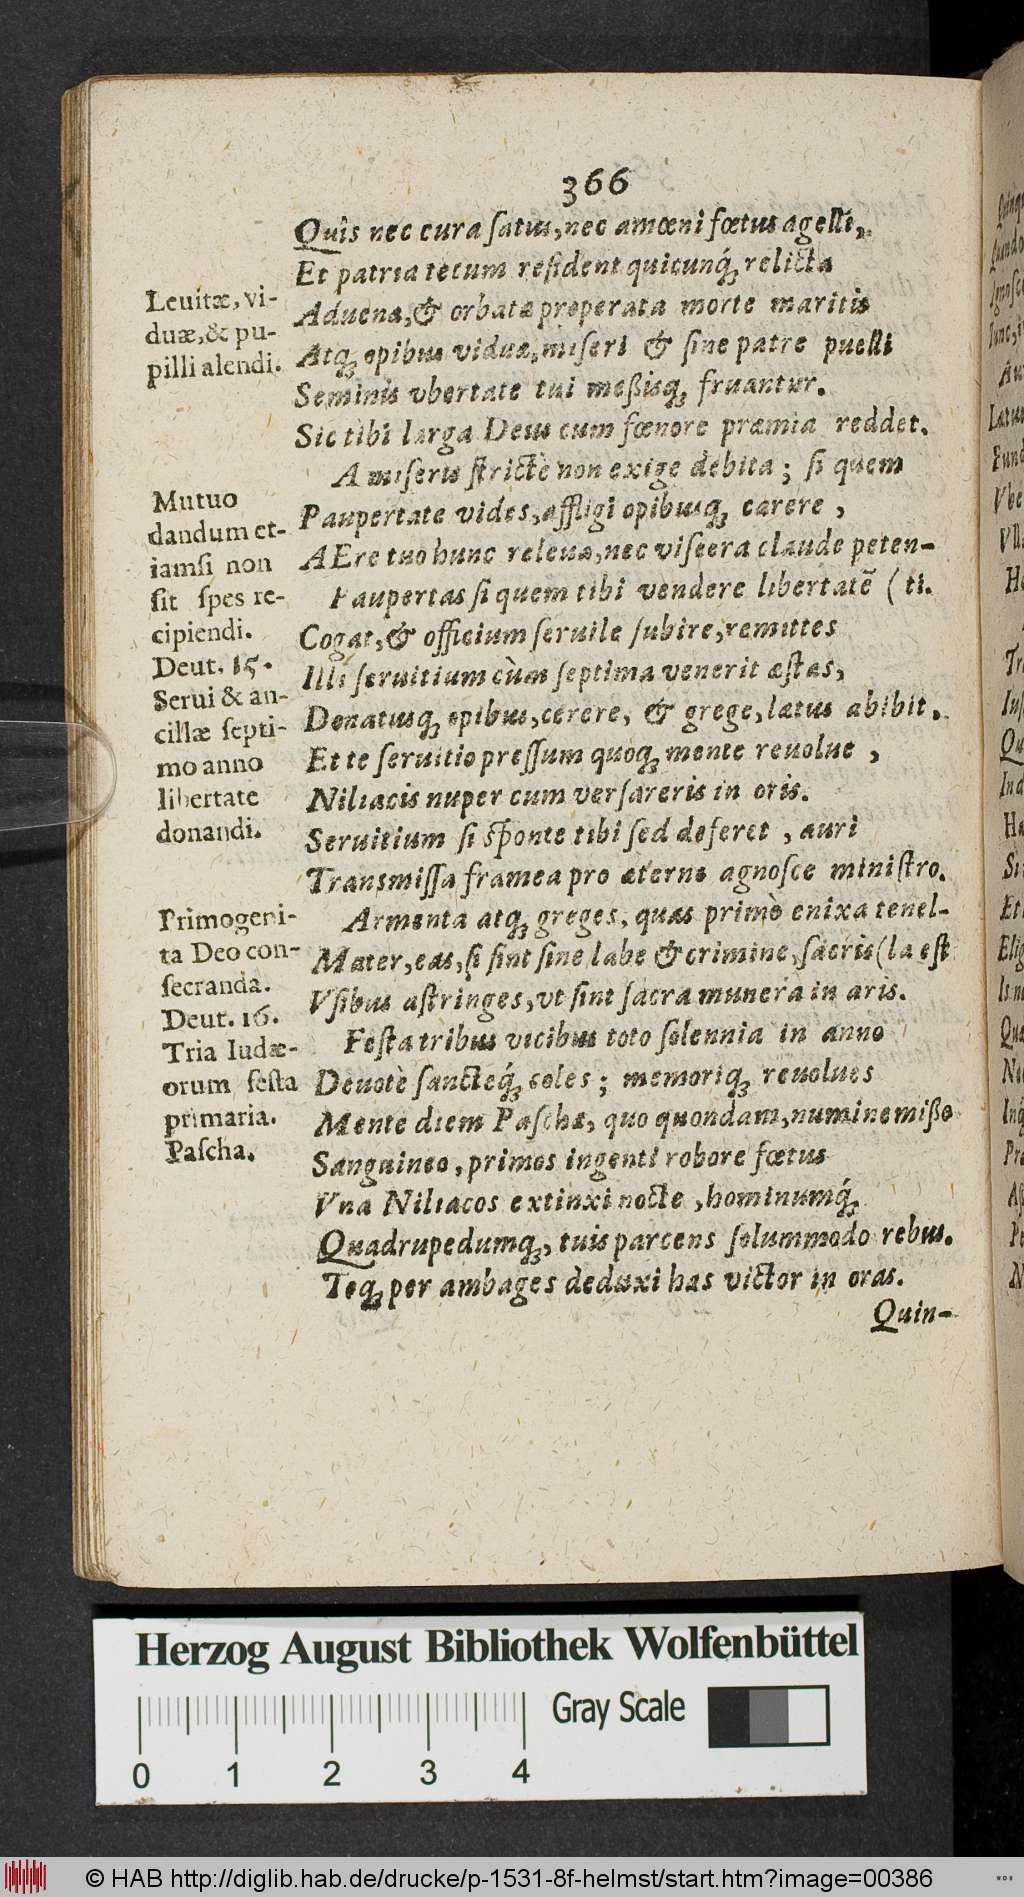 366
Quis nec cura ſatus, nec amœni fœtus agelli,
Et patria tecum reſident quicunq́; relicta
Aduenæ, & orbatæ properata morte maritis
Atq; opibus viduæ, miſeri & ſine patre puelli
Seminis vbertate tui meßisq; fruantur.
Sic tibi larga Deus cum fœnore præmia reddet.
A miſeris ſtrictè non exige debita; ſi quem
Paupertate vides, affligi opibusq; carere,
AEre tuo hunc releua, nec viſcera claude peten-
Paupertas ſi quem tibi vendere libertatē (ti.
Cogat, & officium ſeruile ſubire, remittes
Illi ſeruitium cùm ſeptima venerit æſtas,
Donatusq; opibus, cerere, & grege, lætus abibit.
Et te ſeruitio preſſum quoq; mente reuolue,
Niliacis nuper cum verſareris in oris.
Seruitium ſi ſponte tibi ſed deferet, auri
Transmiſſa framea pro æterno agnoſce miniſtro.
Armenta atq; greges, quas primò enixa tenel-
Mater, eas, ſi ſint ſine labe & crimine, ſacris (la eſt
Vſibus aſtringes, vt ſint ſacra munera in aris.
Feſta tribus vicibus toto ſolennia in anno
Deuotè ſancteq́; coles; memoriq; reuolues
Mente diem Paſchæ, quo quondam, numine miſſo
Sanguineo, primos ingenti robore fœtus
Vna Niliacos extinxi nocte, hominumq́;
Quadrupedumq;, tuis parcens ſolummodo rebus.
Teq; per ambages deduxi has victor in oras.
Quin-
Leuitæ, vi-
duæ, & pu-
pilli alendi.
Mutuo
dandum et-
iamſi non
ſit ſpes re-
cipiendi.
Deut. 15.
Serui & an-
cillæ ſepti-
mo anno
libertate
donandi.
Primogeni-
ta Deo con-
ſecranda.
Deut. 16.
Tria Iudæ-
orum feſta
primaria.
Paſcha.
Herzog August Bibliothek Wolfenbüttel
Gray Scale
0 1 2 3 4
© HAB http://diglib.hab.de/drucke/p-1531-8f-helmst/start.htm?image=00386